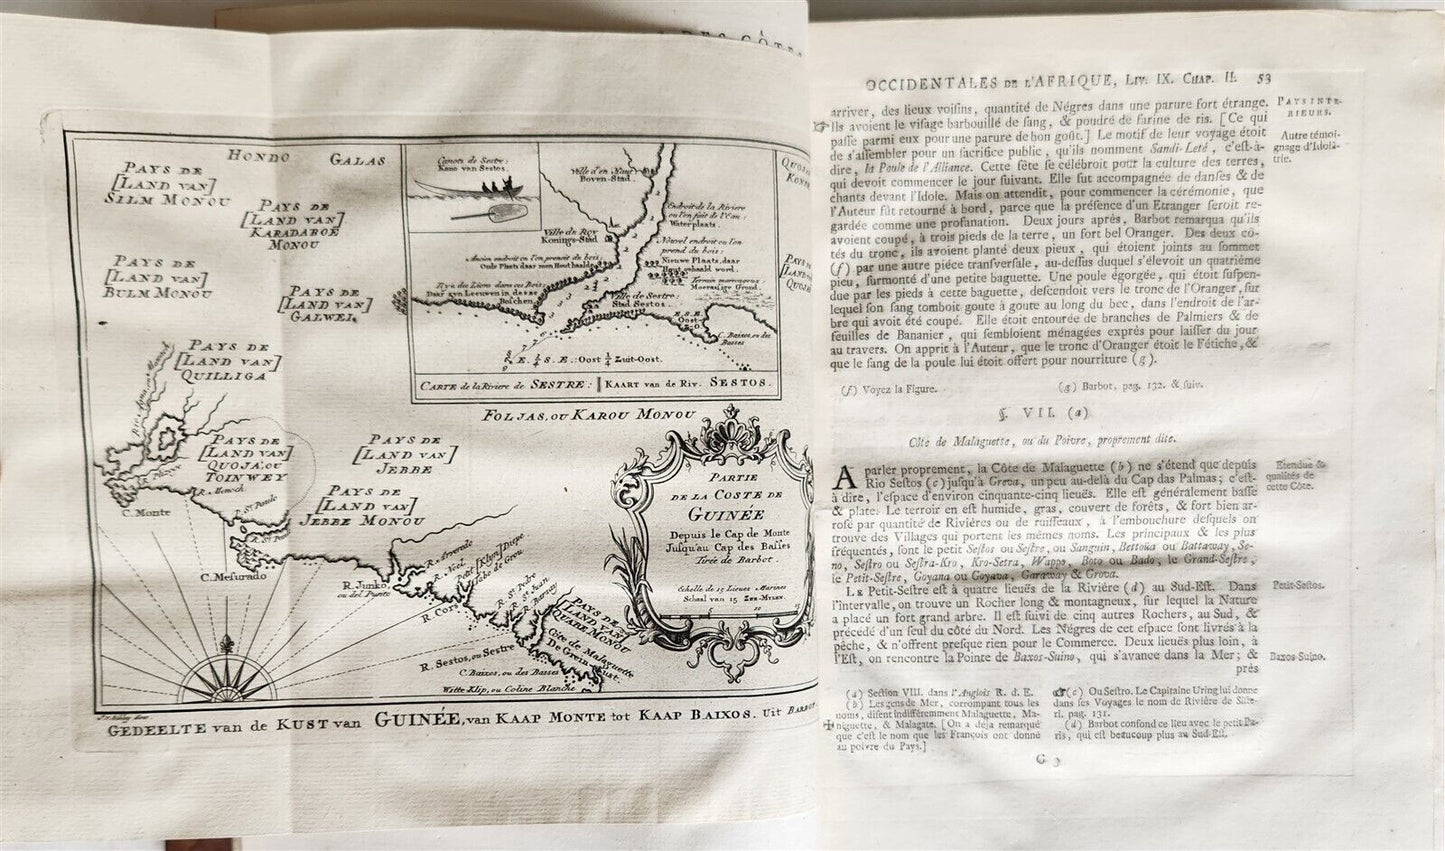 HONDO
GALAS
PAYS DE
[LAND VAN]
SILM MONOU
PAYS DE
[LAND VAN]
KARADABOE
MONOU
PAYS DE
[LAND VAN]
BULM MONOU
PAYS DE
[LAND VAN]
GALWEI
PAYS DE
[LAND VAN]
QUILLIGA
PAYS DE
[LAND VAN]
QUOJA, OU
TOINWEY
PAYS DE
[LAND VAN]
JEBBE
PAYS DE
[LAND VAN]
JEBBE MONOU
C. Monte
C. Mesurado
R. Junko,
ou del Punte
R. Sestos, ou Sestre
C. Baixos, ou des Basses
Witte Klip, ou Coline Blanche
PAYS DE
[LAND VAN]
QUABE MONOU
Côte de Malaguette
Canots de Sestre:
Kano van Sestos.
Ville d'en Haut
Boven-Stad.
Ville du Roy
Konings-Stad
Endroit de la Riviere
ou l'on fait de l'Eau:
Waterplaats.
Nouvel endroit ou l'on
prend du bois:
Nieuwe Plaats, daar
Hout gehaald word.
Terrain marecageux:
Moerassige Grond.
Ancien endroit ou l'on prenoit du bois:
Oude Plaats daar men Hout haalde
Il y a des Lions dans ces Bois:
Daar zyn Leeuwen in deeze
Bosschen.
Ville de Sestre:
Stad Sestos.
C. Baixos, ou des
Basses
E. ¼ S. E.: Oost ¼ Zuit-Oost.
CARTE de la Riviere de SESTRE: KAART van de Riv. SESTOS.
FOLJAS, OU KAROU MONOU
PARTIE
DE LA COSTE DE
GUINÉE
Depuis le Cap de Monte
Jusqu'au Cap des Basses
Tirée de Barbot.
Echelle de 15 Lieues Marines
Schaal van 15 ZEE-MYLEN.
GEDEELTE van de KUST van GUINÉE, van KAAP MONTE tot KAAP BAIXOS. Uit BARBOT
OCCIDENTALES DE L'AFRIQUE, LIV. IX. CHAP. II. 53
arriver, des lieux voisins, quantité de Négres dans une parure fort étrange.
Ils avoient le visage barbouillé de sang, & poudré de farine de ris. [Ce qui
passe parmi eux pour une parure de bon goût.] Le motif de leur voyage étoit
de s'assembler pour un sacrifice public, qu'ils nomment Sandi-Leté, c'est-à-
dire, la Poule de l'Alliance. Cette fête se célébroit pour la culture des terres,
qui devoit commencer le jour suivant. Elle fut accompagnée de danses & de
chants devant l'Idole. Mais on attendit, pour commencer la cérémonie, que
l'Auteur fût retourné à bord, parce que la présence d'un Etranger seroit re-
gardée comme une profanation. Deux jours après, Barbot remarqua qu'ils
avoient coupé, à trois pieds de la terre, un fort bel Oranger. Des deux cô-
tés du tronc, ils avoient planté deux pieux, qui étoient joints au sommet
(f) par une autre piéce transversale, au-dessus duquel s'élevoit un quatriéme
pieu, surmonté d'une petite baguette. Une poule égorgée, qui étoit suspen-
due par les pieds à cette baguette, descendoit vers le tronc de l'Oranger, sur
lequel son sang tomboit goute à goute au long du bec, dans l'endroit de l'ar-
bre qui avoit été coupé. Elle étoit entourée de branches de Palmiers & de
feuilles de Bananier, qui sembloient ménagées exprès pour laisser du jour
au travers. On apprit à l'Auteur, que le tronc d'Oranger étoit le Fétiche, &
que le sang de la poule lui étoit offert pour nourriture (g).
PAYS INTE-
RIEURS.
Autre témoi-
gnage d'Idolâ-
trie.
(f) Voyez la Figure.
(g) Barbot, pag. 132. & suiv.
§. VII. (a)
Côte de Malaguette, ou du Poivre, proprement dite.
A parler proprement, la Côte de Malaguette (b) ne s'étend que depuis
Rio Sestos (c) jusqu'à Grova, un peu au-delà du Cap das Palmas; c'est-
à dire, l'espace d'environ cinquante-cinq lieuës. Elle est généralement basse
& plate. Le terroir en est humide, gras, couvert de forêts, & fort bien ar-
rosé par quantité de Rivières ou de ruisseaux, à l'embouchure desquels on
trouve des Villages qui portent les mêmes noms. Les principaux & les plus
fréquentés, sont le petit Sestos ou Sestre, ou Sanguin, Bettoüa ou Battaway, Se-
no, Sestro ou Sestra-Kro, Kro-Setra, Wapps, Boto ou Bado, le Grand-Sestre,
le Petit-Sestre, Goyana ou Goyava, Garaway & Grova.
LE Petit-Sestre est à quatre lieuës de la Rivière (d) au Sud-Est. Dans
l'intervalle, on trouve un Rocher long & montagneux, sur lequel la Nature
a placé un fort grand arbre. Il est suivi de cinq autres Rochers, au Sud, &
précédé d'un seul du côté du Nord. Les Négres de cet espace sont livrés à la
pêche, & n'offrent presque rien pour le Commerce. Deux lieuës plus loin, à
l'Est, on rencontre la Pointe de Baxos-Suino, qui s'avance dans la Mer; &
près
Etendue &
qualités de
cette Côte.
Petit-Sestos.
Baxos-Suino.
(a) Section VIII. dans l'Anglois R. d. E.
(b) Les gens de Mer, corrompant tous les
noms, disent indifféremment Malaguette, Ma-
niguette, & Malagate. [On a déja remarqué
que c'est le nom que les François ont donné
au poivre du Pays.]
(c) Ou Sestro. Le Capitaine Uring lui donne
dans ses Voyages le nom de Rivière de Siste-
ri. pag. 131.
(d) Barbot confond ce lieu avec le petit Pa-
ris, qui est beaucoup plus au Sud-Est.
G 3